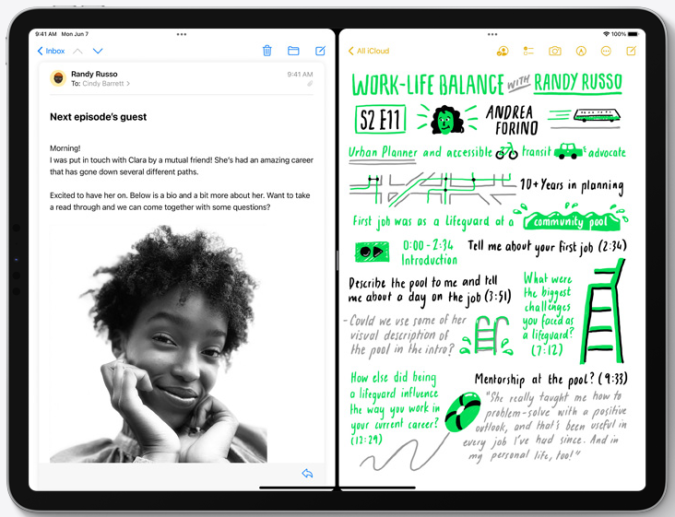 9:41 AM Mon Jun 7
100%
Inbox
Randy Russo
9:41 AM
To: Cindy Barrett
Next episode's guest
Morning!
I was put in touch with Clara by a mutual friend! She's had an amazing career
that has gone down several different paths.
Excited to have her on. Below is a bio and a bit more about her. Want to take
a read through and we can come together with some questions?
All iCloud
WORK-LIFE BALANCE WITH RANDY RUSSO
S2 E11
ANDREA
FORINO
Urban Planner and accessible transit advocate
10+ Years in planning
First job was as a lifeguard at a community pool
0:00 - 2:34
Introduction
Tell me about your first job (2:34)
Describe the pool to me and tell
me about a day on the job (3:51)
- Could we use some of her
visual description of
the pool in the intro?
What were
the biggest
challenges
you faced as
a lifeguard?
(7:12)
How else did being
a lifeguard influence
the way you work in
your current career?
(12:29)
Mentorship at the pool? (9:33)
"She really taught me how to
problem-solve with a positive
outlook, and that's been useful in
every job I've had since. And in
my personal life, too!"